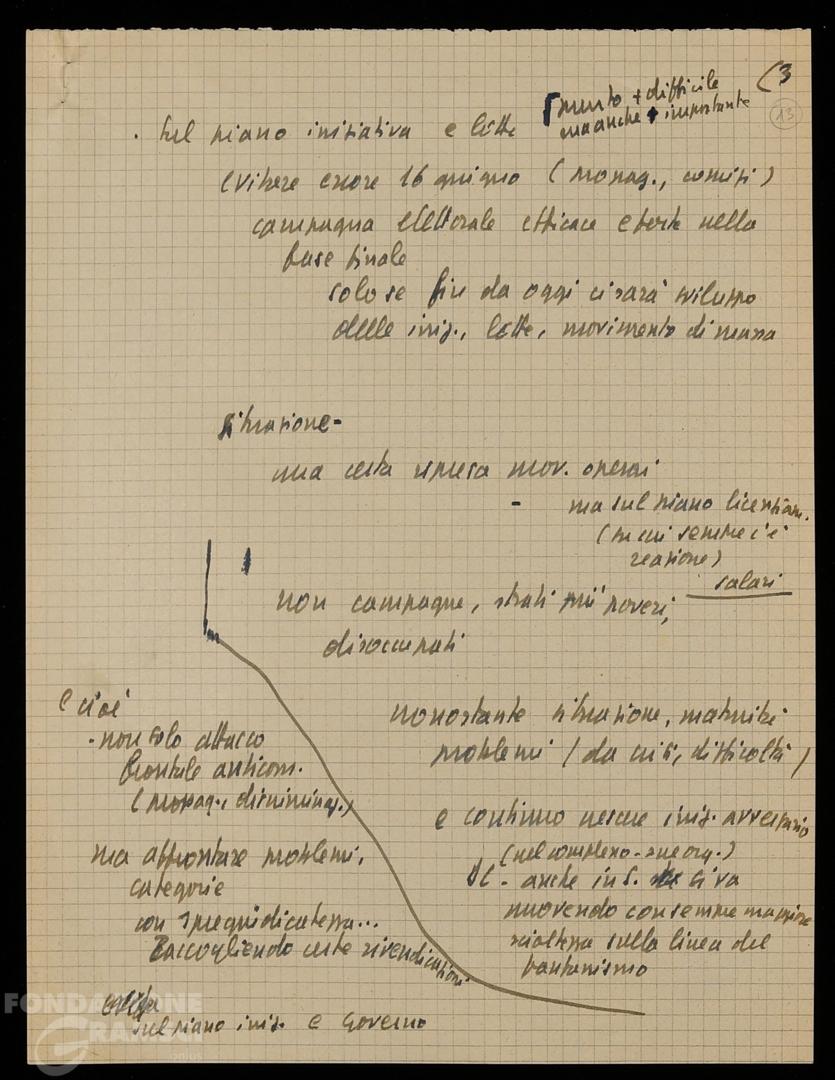 (3
13
punto + difficile
ma anche + importante
. Sul piano iniziativa e lotte
Evitare errore 16 giugno (propag., comizi)
campagna elettorale efficace e forte nella
fase finale
solo se fin da oggi ci sarà sviluppo
delle iniz., lotte, movimento di massa
Situazione -
una certa ripresa mov. operai
- ma sul piano licenziam.
(su cui sempre c'è
reazione)
salari
non campagne, strati più poveri,
disoccupati
nonostante situazione, maturità
problemi (da crisi, difficoltà)
e continuo crescere iniz. avversario
(nel complesso - sue org.)
DC - anche in S. si va
muovendo con sempre maggiore
scioltezza sulla linea del
fanfanismo
E cioè
- non solo attacco
frontale anticom.
(propag., discriminaz.)
ma affrontare problemi,
categorie
con spregiudicatezza...
Raccogliendo certe rivendicazioni
sul piano iniz. e Governo
FONDAZIONE
GRAMSCI
onlus